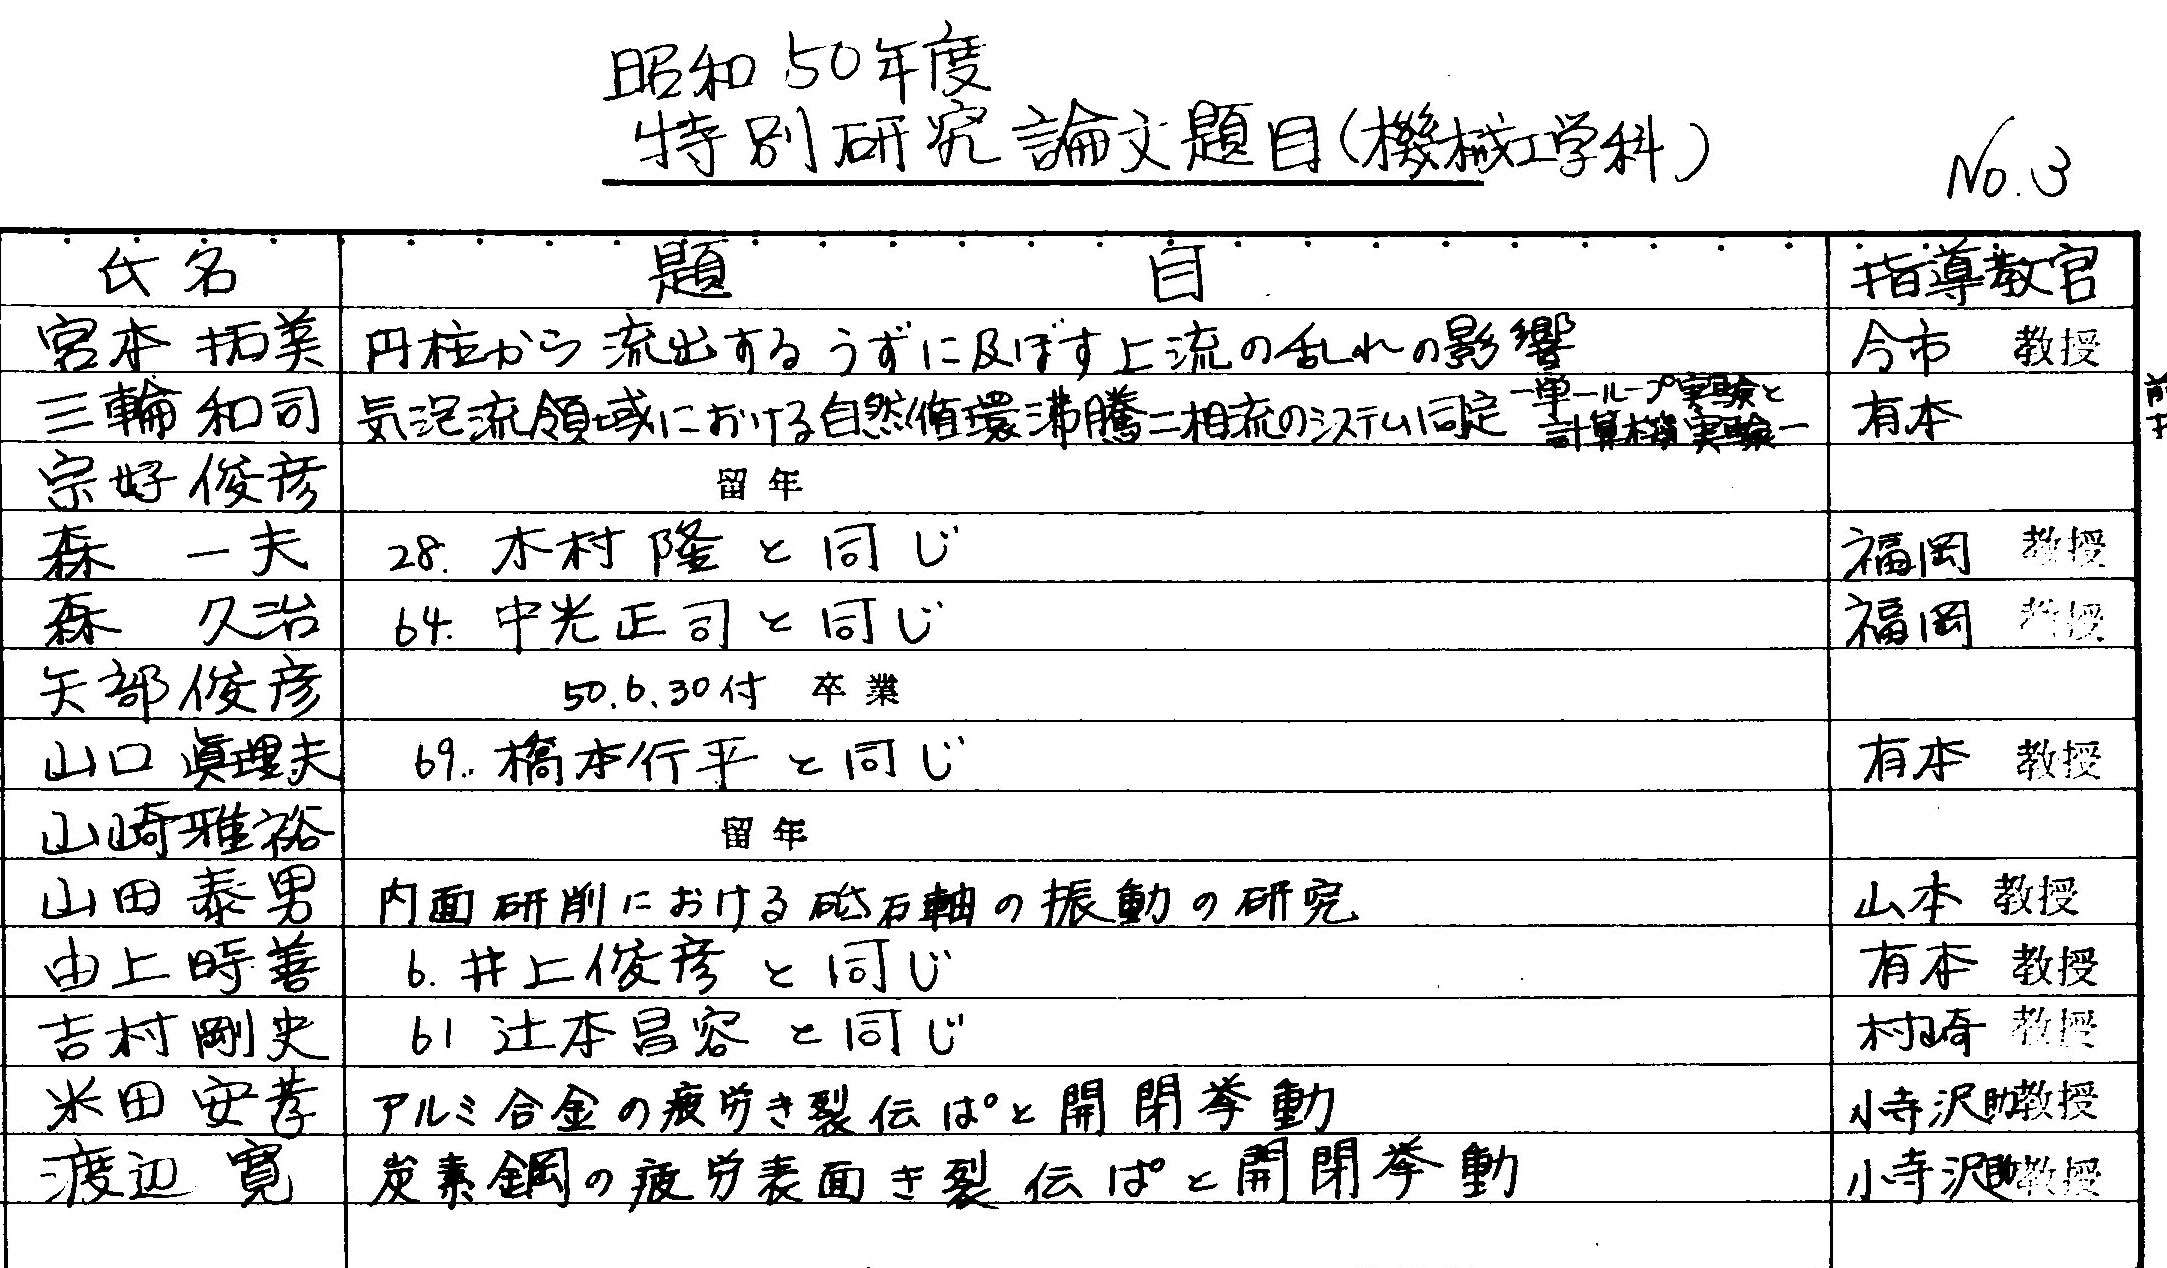 昭和50年度
特別研究論文題目(機械工学科)
No.3
氏名 題 目 指導教官
宮本拓美 円柱から流出するうずに及ぼす上流の乱れの影響 今市 教授
三輪和司 気泡流領域における自然循環沸騰二相流のシステム同定 ー単一ループ実験と計算機実験ー 有本
宗好俊彦 留年
森 一夫 28. 木村隆と同じ 福岡 教授
森 久治 64. 中光正司と同じ 福岡 教授
矢部俊彦 50.6.30付 卒業
山口眞理夫 69. 橋本行平と同じ 有本 教授
山崎雅裕 留年
山田泰男 内面研削における砥石軸の振動の研究 山本 教授
由上時善 6. 井上俊彦と同じ 有本 教授
吉村剛史 61 辻本昌容と同じ 村崎 教授
米田安孝 アルミ合金の疲労き裂伝ぱと開閉挙動 小寺沢助教授
渡辺 寛 炭素鋼の疲労表面き裂伝ぱと開閉挙動 小寺沢助教授